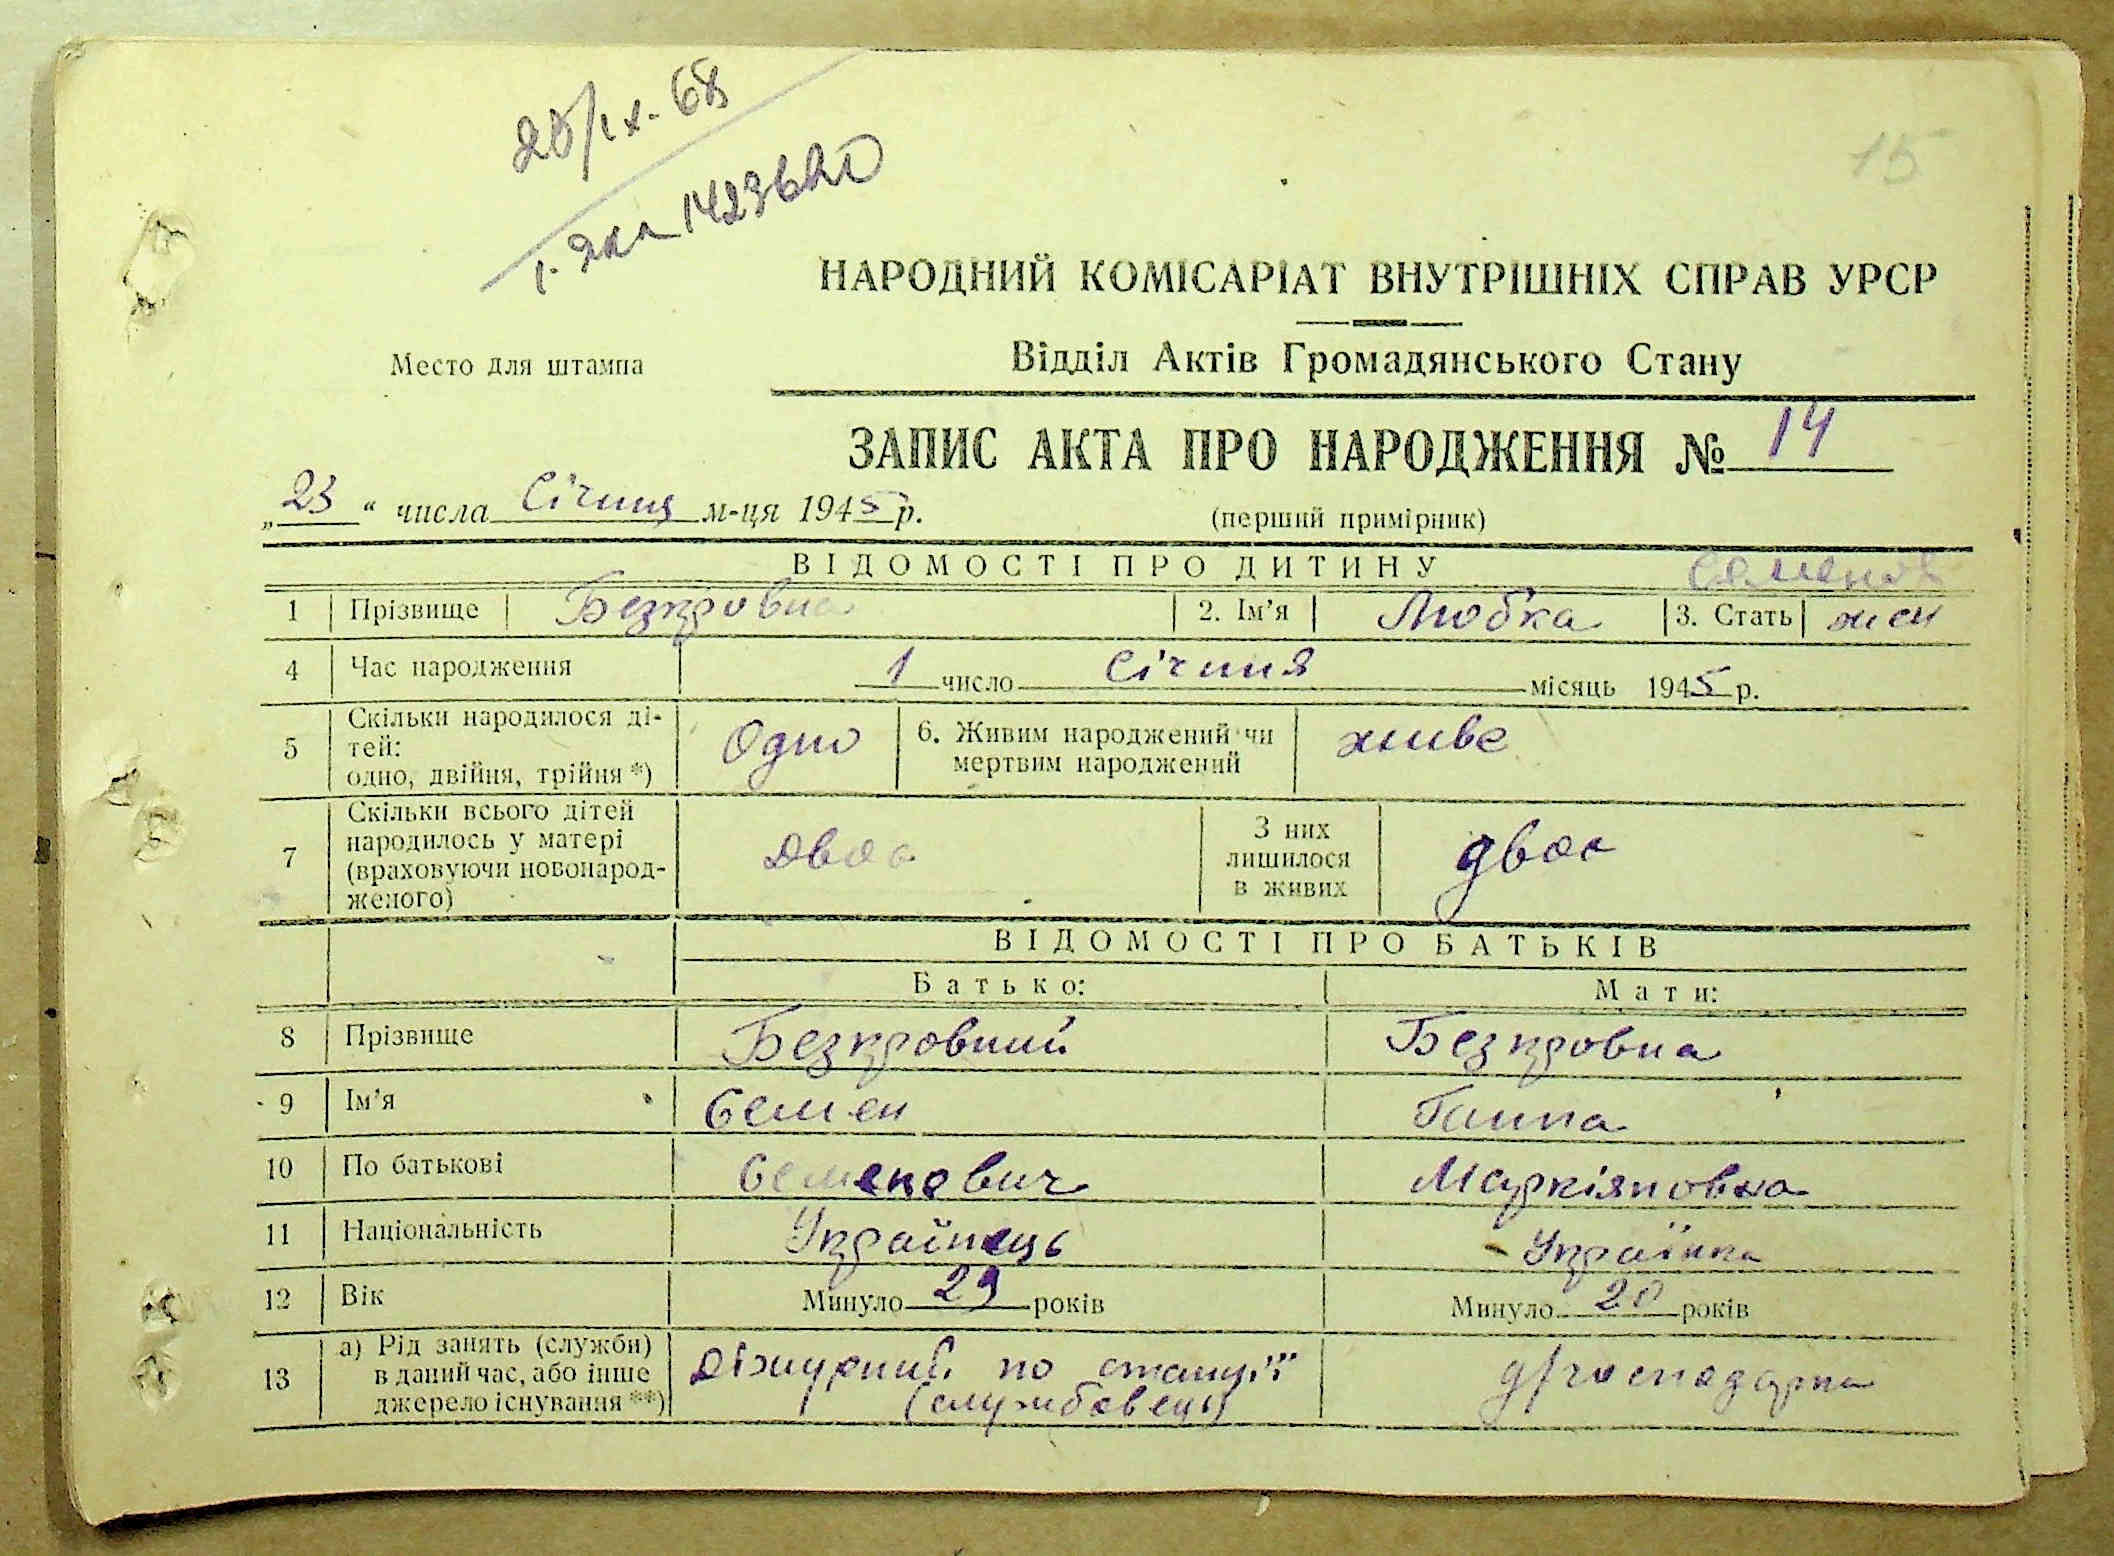 20/ІХ-68
15
НАРОДНИЙ КОМІСАРІАТ ВНУТРІШНІХ СПРАВ УРСР
Место для штампа
Відділ Актів Громадянського Стану
ЗАПИС АКТА ПРО НАРОДЖЕННЯ № 14
„23“ числа Січня м-ця 1945 р.
(перший примірник)
ВІДОМОСТІ ПРО ДИТИНУ
1 Прізвище Безкровна 2. Ім'я Любка 3. Стать жен
4 Час народження 1 число Січня місяць 1945 р.
5 Скільки народилося ді-
тей:
одно, двійня, трійня *)
Одно
6. Живим народжений чи
мертвим народжений
живе
7 Скільки всього дітей
народилось у матері
(враховуючи новонарод-
женого)
двоє
З них
лишилося
в живих
двоє
ВІДОМОСТІ ПРО БАТЬКІВ
Батько: Мати:
8 Прізвище Безкровний Безкровна
9 Ім'я Семен Ганна
10 По батькові Семенович Маркіяновна
11 Національність Українець Українка
12 Вік Минуло 29 років Минуло 20 років
13 а) Рід занять (служби)
в даний час, або інше
джерело існування **)
Діжурний по станції
(службовець)
д/господарка